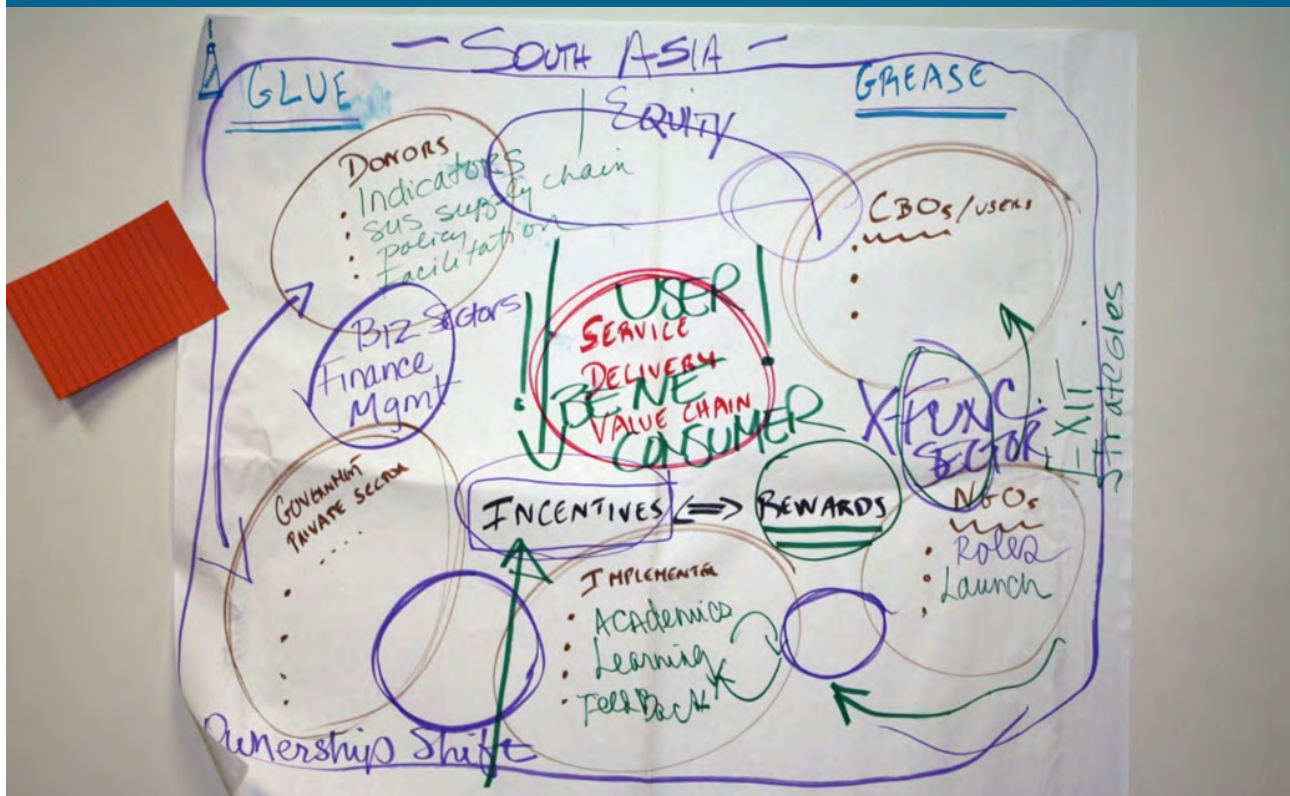 — SOUTH ASIA —
GLUE
GREASE
EQUITY
DONORS
. Indicators
. SUS supply chain
. Policy
. Facilitation
CBOs/USERS
BIZ Sectors
Finance
Mgmt
USER
SERVICE
DELIVERY
BENE
VALUE CHAIN
CONSUMER
X-FUNC.
SECTOR
EXIT
Strategies
GOVERNMT
PRIVATE SECTOR
INCENTIVES <=> REWARDS
NGOs
. Roles
. Launch
IMPLEMENTER
. ACADemics
. Learning
. FeedBack
Ownership Shift